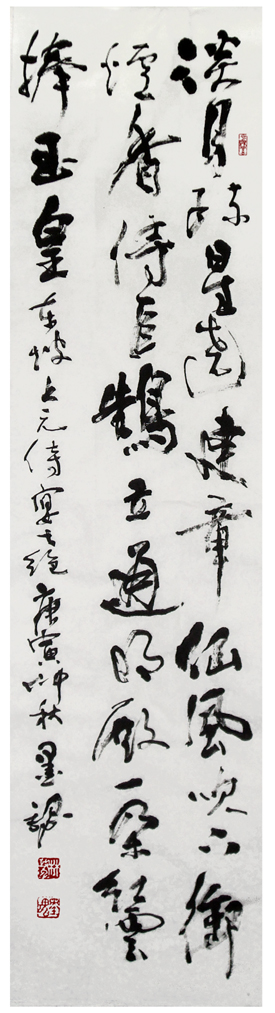 淡月疎星遶建章仙風吹下御
爐香侍臣鵠立通明殿一朵紅雲
捧玉皇 東坡上元侍宴七絶 庚寅仲秋 墨